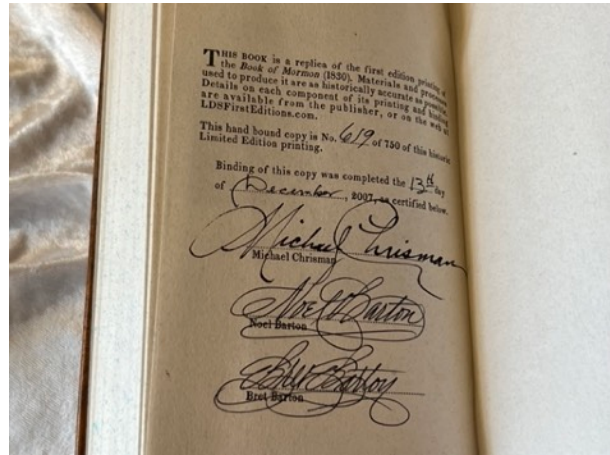 THIS BOOK is a replica of the first edition printing of
the Book of Mormon (1830). Materials and processes
used to produce it are as historically accurate as possible.
Details on each component of its printing and binding
are available from the publisher, or on the web at
LDSFirstEditions.com.
This hand bound copy is No. 619 of 750 of this historic
Limited Edition printing.
Binding of this copy was completed the 13th day
of December, 2007, as certified below.
Michael Chrisman
Michael Chrisman
Noel Barton
Noel Barton
Bret Barton
Bret Barton